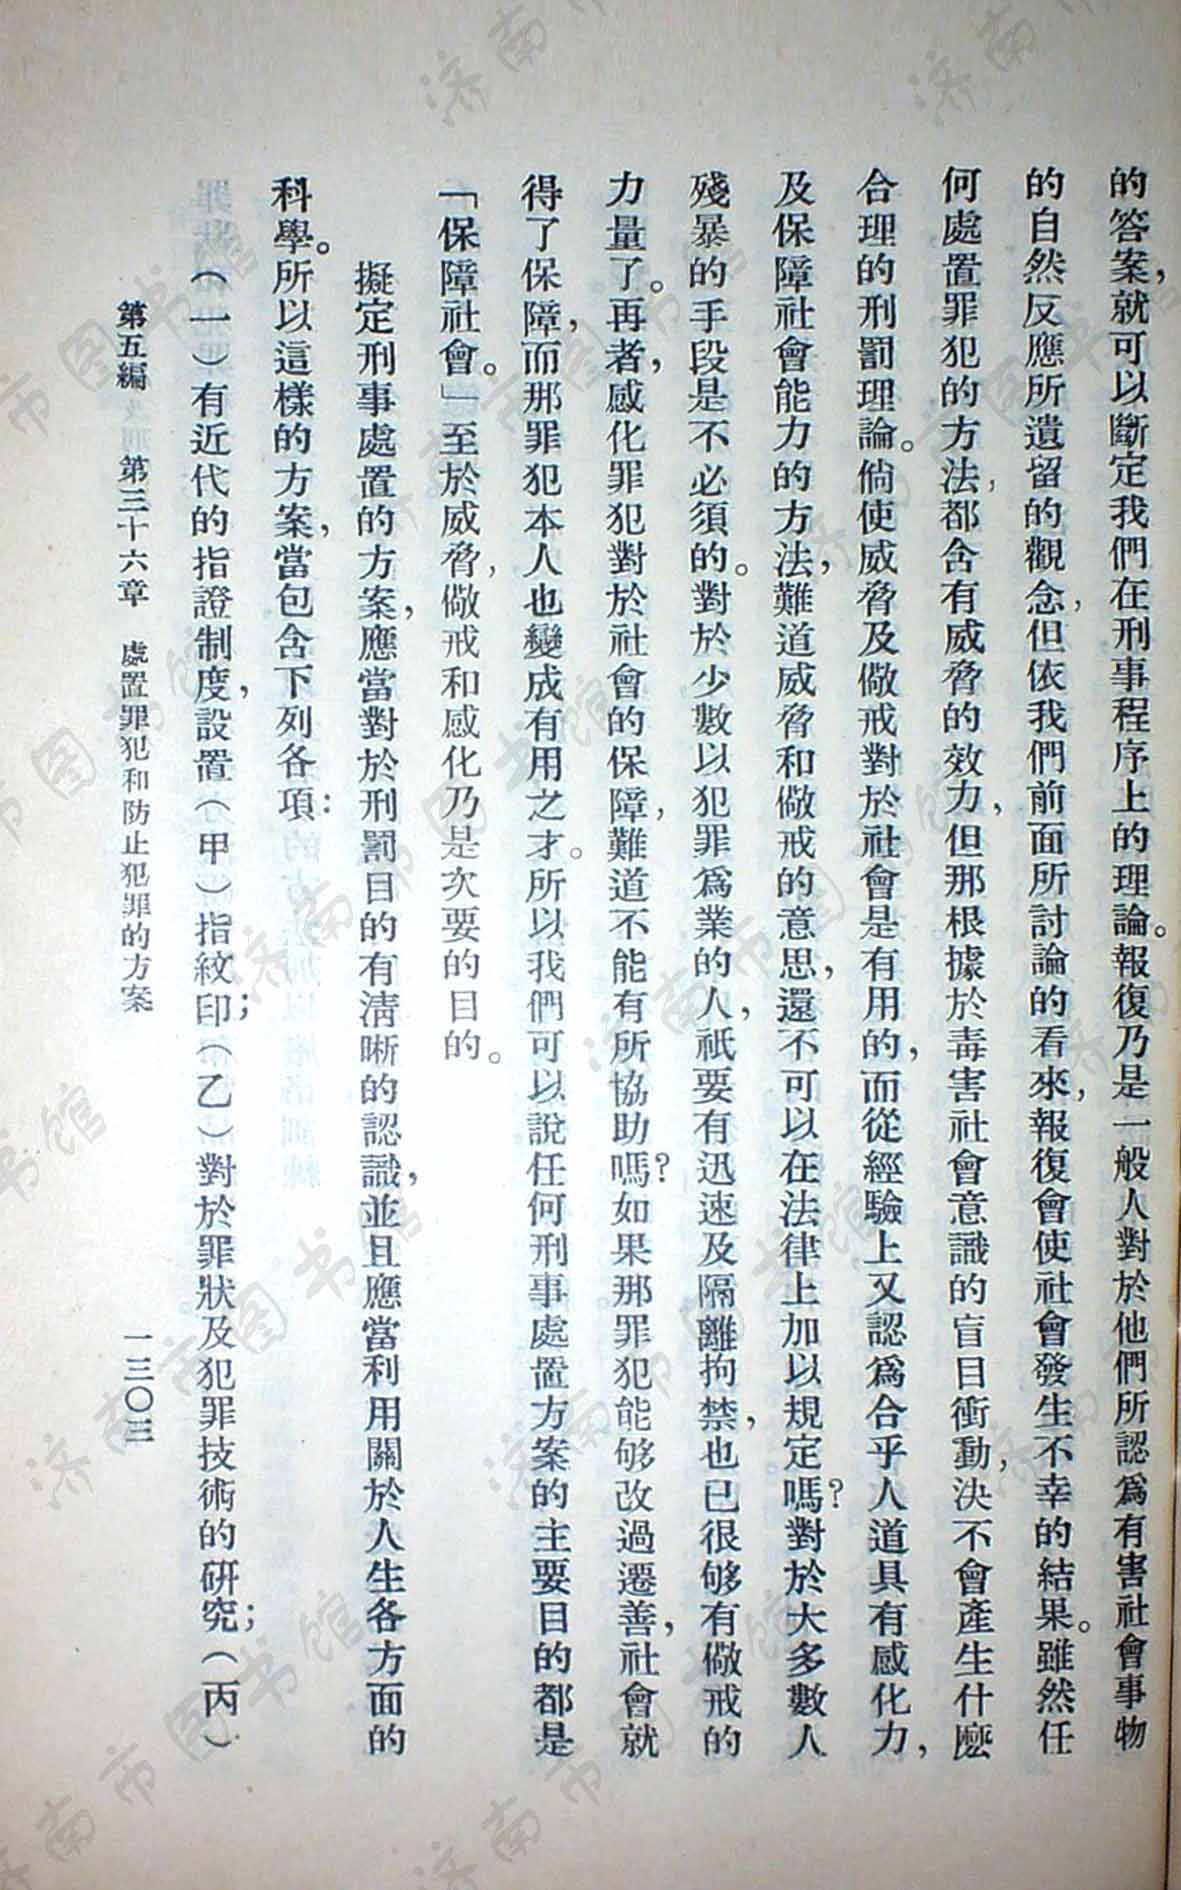 的答案，就可以斷定我們在刑事程序上的理論。報復乃是一般人對於他們所認爲有害社會事物
的自然反應所遺留的觀念，但依我們前面所討論的看來，報復會使社會發生不幸的結果。雖然任
何處置罪犯的方法，都含有威脅的效力，但那根據於毒害社會意識的盲目衝動，決不會產生什麼
合理的刑罰理論。倘使威脅及儆戒對於社會是有用的，而從經驗上又認爲合乎人道具有感化力，
及保障社會能力的方法，難道威脅和儆戒的意思，還不可以在法律上加以規定嗎？對於大多數人
殘暴的手段是不必須的。對於少數以犯罪爲業的人，祇要有迅速及隔離拘禁，也已很够有儆戒的
力量了。再者，感化罪犯對於社會的保障，難道不能有所協助嗎？如果那罪犯能够改過遷善，社會就
得了保障，而那罪犯本人也變成有用之才。所以我們可以說任何刑事處置方案的主要目的都是
「保障社會。」至於威脅，儆戒和感化乃是次要的目的。
擬定刑事處置的方案，應當對於刑罰目的有清晰的認識，並且應當利用關於人生各方面的
科學。所以這樣的方案，當包含下列各項：
（一）有近代的指證制度，設置（甲）指紋印；（乙）對於罪狀及犯罪技術的研究；（丙）
第五編　第三十六章　處置罪犯和防止犯罪的方案　一三〇三
济南市图书馆